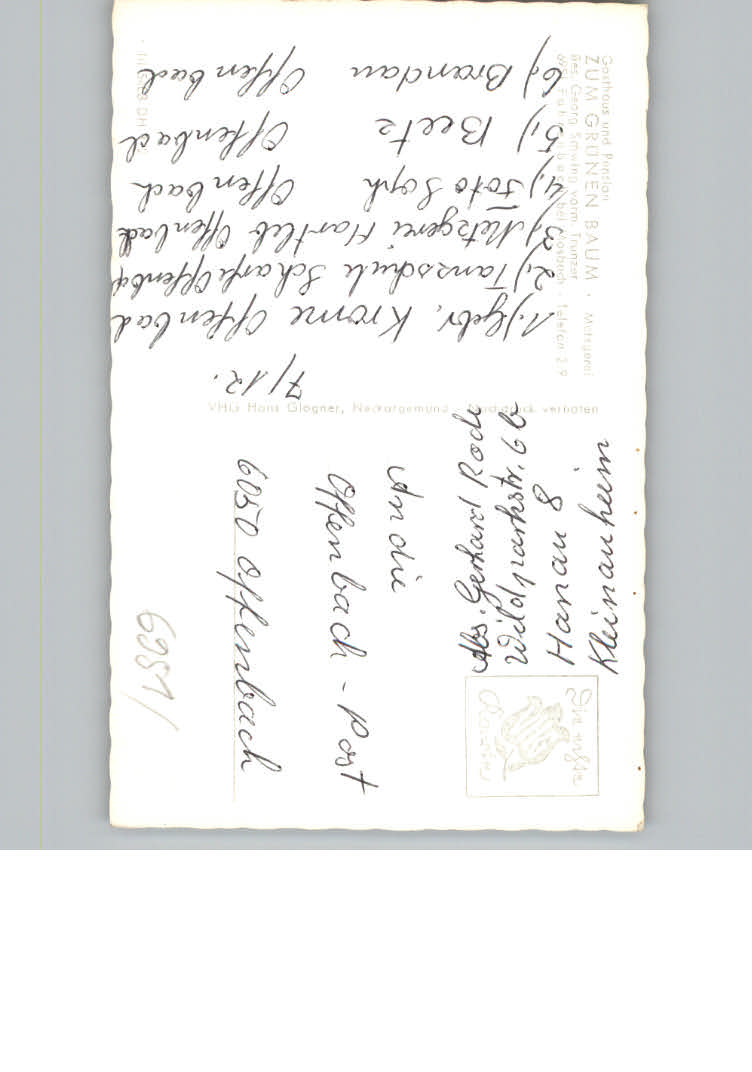 Gasthaus und Pension
ZUM GRÜNEN BAUM · Metzgerei
Bes. Georg vorm. Trunzer
bei Mosbach · Telefon 2 9
VHG Hans Glogner, Neckargemünd · Nachdruck verboten
7/12.
1.) Gebr. Krome Offenbach
2.) Tanzschule Scharf Offenbach
3.) Metzgerei Hartleb Offenbach
4.) Foto Soph Offenbach
5.) Beetz Offenbach
6.) Brandau Offenbach
Abs. Gerhard Rode
Wildparkstr. 6b
Hanau 8
Kleinauheim
An die
Offenbach-Post
6050 Offenbach
6951/